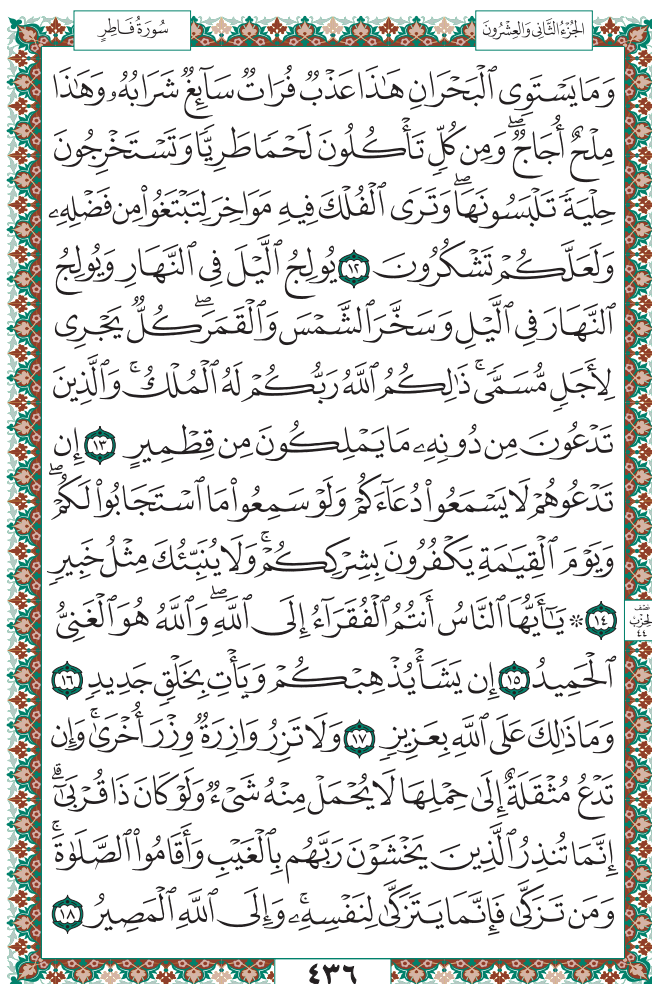 سُورَةُ فَاطِرٍ
الجُزْءُ الثَّانِي وَالعِشْرُونَ
وَمَا يَسْتَوِي ٱلْبَحْرَانِ هَٰذَا عَذْبٌ فُرَاتٌ سَآئِغٌ شَرَابُهُۥ وَهَٰذَا
مِلْحٌ أُجَاجٌۖ وَمِن كُلٍّ تَأْكُلُونَ لَحْمًا طَرِيًّا وَتَسْتَخْرِجُونَ
حِلْيَةً تَلْبَسُونَهَاۖ وَتَرَى ٱلْفُلْكَ فِيهِ مَوَاخِرَ لِتَبْتَغُوا۟ مِن فَضْلِهِۦ
وَلَعَلَّكُمْ تَشْكُرُونَ ١٢ يُولِجُ ٱلَّيْلَ فِي ٱلنَّهَارِ وَيُولِجُ
ٱلنَّهَارَ فِي ٱلَّيْلِ وَسَخَّرَ ٱلشَّمْسَ وَٱلْقَمَرَۖ كُلٌّ يَجْرِي
لِأَجَلٍ مُّسَمًّىۚ ذَٰلِكُمُ ٱللَّهُ رَبُّكُمْ لَهُ ٱلْمُلْكُۚ وَٱلَّذِينَ
تَدْعُونَ مِن دُونِهِۦ مَا يَمْلِكُونَ مِن قِطْمِيرٍ ١٣ إِن
تَدْعُوهُمْ لَا يَسْمَعُوا۟ دُعَآءَكُمْ وَلَوْ سَمِعُوا۟ مَا ٱسْتَجَابُوا۟ لَكُمْۖ
وَيَوْمَ ٱلْقِيَٰمَةِ يَكْفُرُونَ بِشِرْكِكُمْۚ وَلَا يُنَبِّئُكَ مِثْلُ خَبِيرٍ
١٤ ۞ يَٰٓأَيُّهَا ٱلنَّاسُ أَنتُمُ ٱلْفُقَرَآءُ إِلَى ٱللَّهِۖ وَٱللَّهُ هُوَ ٱلْغَنِيُّ
نصف
الحزب
٤٤
ٱلْحَمِيدُ ١٥ إِن يَشَأْ يُذْهِبْكُمْ وَيَأْتِ بِخَلْقٍ جَدِيدٍ ١٦
وَمَا ذَٰلِكَ عَلَى ٱللَّهِ بِعَزِيزٍ ١٧ وَلَا تَزِرُ وَازِرَةٌ وِزْرَ أُخْرَىٰۚ وَإِن
تَدْعُ مُثْقَلَةٌ إِلَىٰ حِمْلِهَا لَا يُحْمَلْ مِنْهُ شَيْءٌ وَلَوْ كَانَ ذَا قُرْبَىٰٓۗ
إِنَّمَا تُنذِرُ ٱلَّذِينَ يَخْشَوْنَ رَبَّهُم بِٱلْغَيْبِ وَأَقَامُوا۟ ٱلصَّلَوٰةَۚ
وَمَن تَزَكَّىٰ فَإِنَّمَا يَتَزَكَّىٰ لِنَفْسِهِۦۚ وَإِلَى ٱللَّهِ ٱلْمَصِيرُ ١٨
٤٣٦